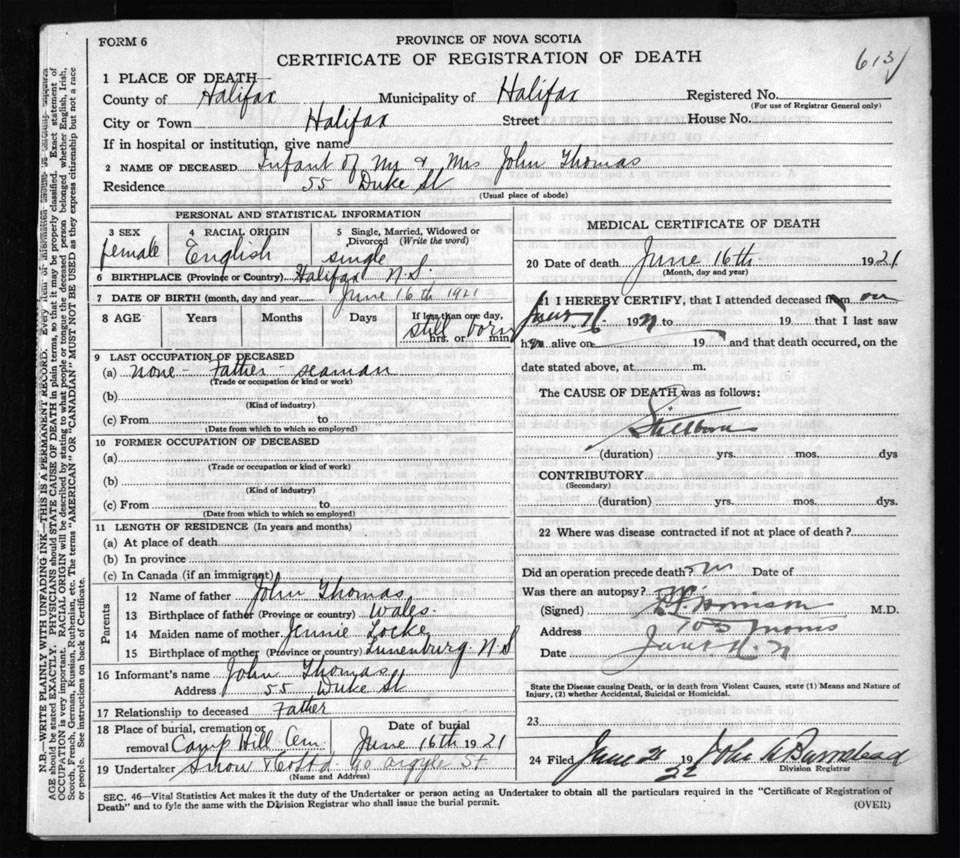 FORM 6
PROVINCE OF NOVA SCOTIA
CERTIFICATE OF REGISTRATION OF DEATH
613
1 PLACE OF DEATH
County of Halifax Municipality of Halifax Registered No.
(For use of Registrar General only)
City or Town Halifax Street House No.
If in hospital or institution, give name
2 NAME OF DECEASED Infant of Mr & Mrs John Thomas
Residence 55 Duke St
(Usual place of abode)
PERSONAL AND STATISTICAL INFORMATION
3 SEX 4 RACIAL ORIGIN 5 Single, Married, Widowed or Divorced (Write the word)
female English single
6 BIRTHPLACE (Province or Country) Halifax N.S.
7 DATE OF BIRTH (month, day and year) June 16th 1921
8 AGE Years Months Days If less than one day,
still born
hrs. or min.
9 LAST OCCUPATION OF DECEASED
(a) none - Father - seaman
(Trade or occupation or kind or work)
(b)
(Kind of industry)
(c) From to
(Date from which to which so employed)
10 FORMER OCCUPATION OF DECEASED
(a)
(Trade or occupation or kind of work)
(b)
(Kind of industry)
(c) From to
(Date from which to which so employed)
11 LENGTH OF RESIDENCE (In years and months)
(a) At place of death
(b) In province
(c) In Canada (if an immigrant)
Parents
12 Name of father John Thomas
13 Birthplace of father (Province or country) Wales
14 Maiden name of mother Jennie Locke
15 Birthplace of mother (Province or country) Lunenburg N.S
16 Informant's name John Thomas
Address 55 Duke St
17 Relationship to deceased Father
18 Place of burial, cremation or removal Camp Hill Cem Date of burial June 16th 1921
19 Undertaker Snow & 90 Argyle St
(Name and Address)
MEDICAL CERTIFICATE OF DEATH
20 Date of death June 16th 1921
(Month, day and year)
21 I HEREBY CERTIFY, that I attended deceased from on
1921 to 19 that I last saw
h alive on 19 and that death occurred, on the
date stated above, at m.
The CAUSE OF DEATH was as follows:
Stillborn
(duration) yrs. mos. dys
CONTRIBUTORY
(Secondary)
(duration) yrs. mos. dys.
22 Where was disease contracted if not at place of death?
Did an operation precede death? no Date of
Was there an autopsy? no
(Signed) Morrison M.D.
Address 103 Morris
Date
State the Disease causing Death, or in death from Violent Causes, state (1) Means and Nature of
Injury, (2) whether Accidental, Suicidal or Homicidal.
23
24 Filed June 21 19 John A Barnstead
22
Division Registrar
SEC. 46—Vital Statistics Act makes it the duty of the Undertaker or person acting as Undertaker to obtain all the particulars required in the "Certificate of Registration of
Death" and to fyle the same with the Division Registrar who shall issue the burial permit.
(OVER)
N.B.—WRITE PLAINLY WITH UNFADING INK—THIS IS A PERMANENT RECORD. Every item of information should be
AGE should be stated EXACTLY. PHYSICIANS should STATE CAUSE OF DEATH in plain terms, so that it may be properly classified. Exact statement of
OCCUPATION is very important. RACIAL ORIGIN will be described by stating to what people or tongue the deceased person belonged whether English, Irish,
Scotch, French, German, Russian, Ruthenian, etc. The terms "AMERICAN" OR "CANADIAN" MUST NOT BE USED as they express citizenship but not a race
or people. See instructions on back of Certificate.